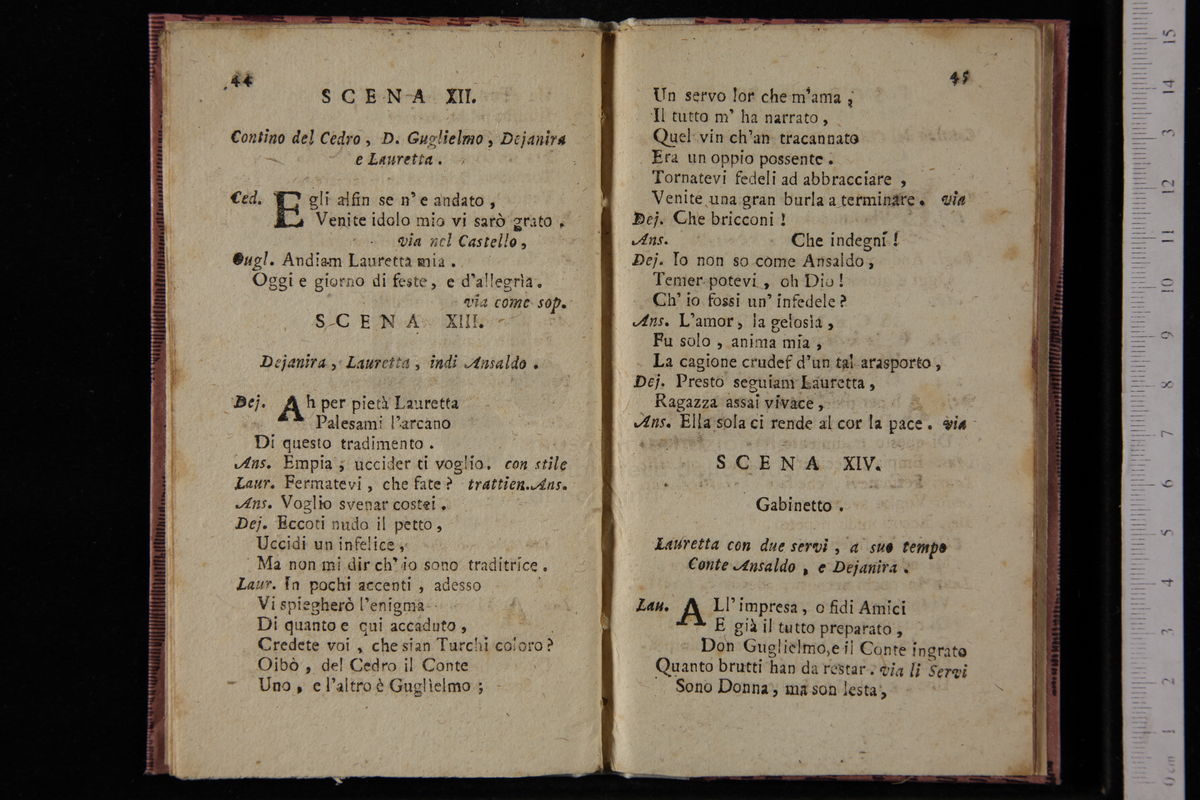 44
SCENA XII.
Contino del Cedro, D. Guglielmo, Dejanira
e Lauretta.
Ced. Egli alfin se n'e andato,
Venite idolo mio vi sarò grato.
via nel Castello,
Gugl. Andiam Lauretta mia.
Oggi e giorno di feste, e d'allegrìa.
via come sop.
SCENA XIII.
Dejanira, Lauretta, indi Ansaldo.
Dej. Ah per pietà Lauretta
Palesami l'arcano
Di questo tradimento.
Ans. Empia, uccider ti voglio. con stile
Laur. Fermatevi, che fate? trattien.Ans.
Ans. Voglio svenar costei.
Dej. Eccoti nudo il petto,
Uccidi un infelice,
Ma non mi dir ch'io sono traditrice.
Laur. In pochi accenti, adesso
Vi spiegherò l'enigma
Di quanto e qui accaduto,
Credete voi, che sian Turchi coloro?
Oibò, del Cedro il Conte
Uno, e l'altro è Guglielmo;
45
Un servo lor che m'ama,
Il tutto m'ha narrato,
Quel vin ch'an tracannato
Era un oppio possente.
Tornatevi fedeli ad abbracciare,
Venite una gran burla a terminare. via
Dej. Che bricconi!
Ans. Che indegni!
Dej. Io non so come Ansaldo,
Temer potevi, oh Dio!
Ch' io fossi un' infedele?
Ans. L'amor, la gelosìa,
Fu solo, anima mia,
La cagione crudef d'un tal arasporto,
Dej. Presto seguiam Lauretta,
Ragazza assai vivace,
Ans. Ella sola ci rende al cor la pace. via
SCENA XIV.
Gabinetto.
Lauretta con due servi, a suo tempo
Conte Ansaldo, e Dejanira.
Lau. ALl'impresa, o fidi Amici
E già il tutto preparato,
Don Guglielmo,e il Conte ingrato
Quanto brutti han da restar. via li Servi
Sono Donna, ma son lesta,
0 cm 1 2 3 4 5 6 7 8 9 10 11 12 13 14 15